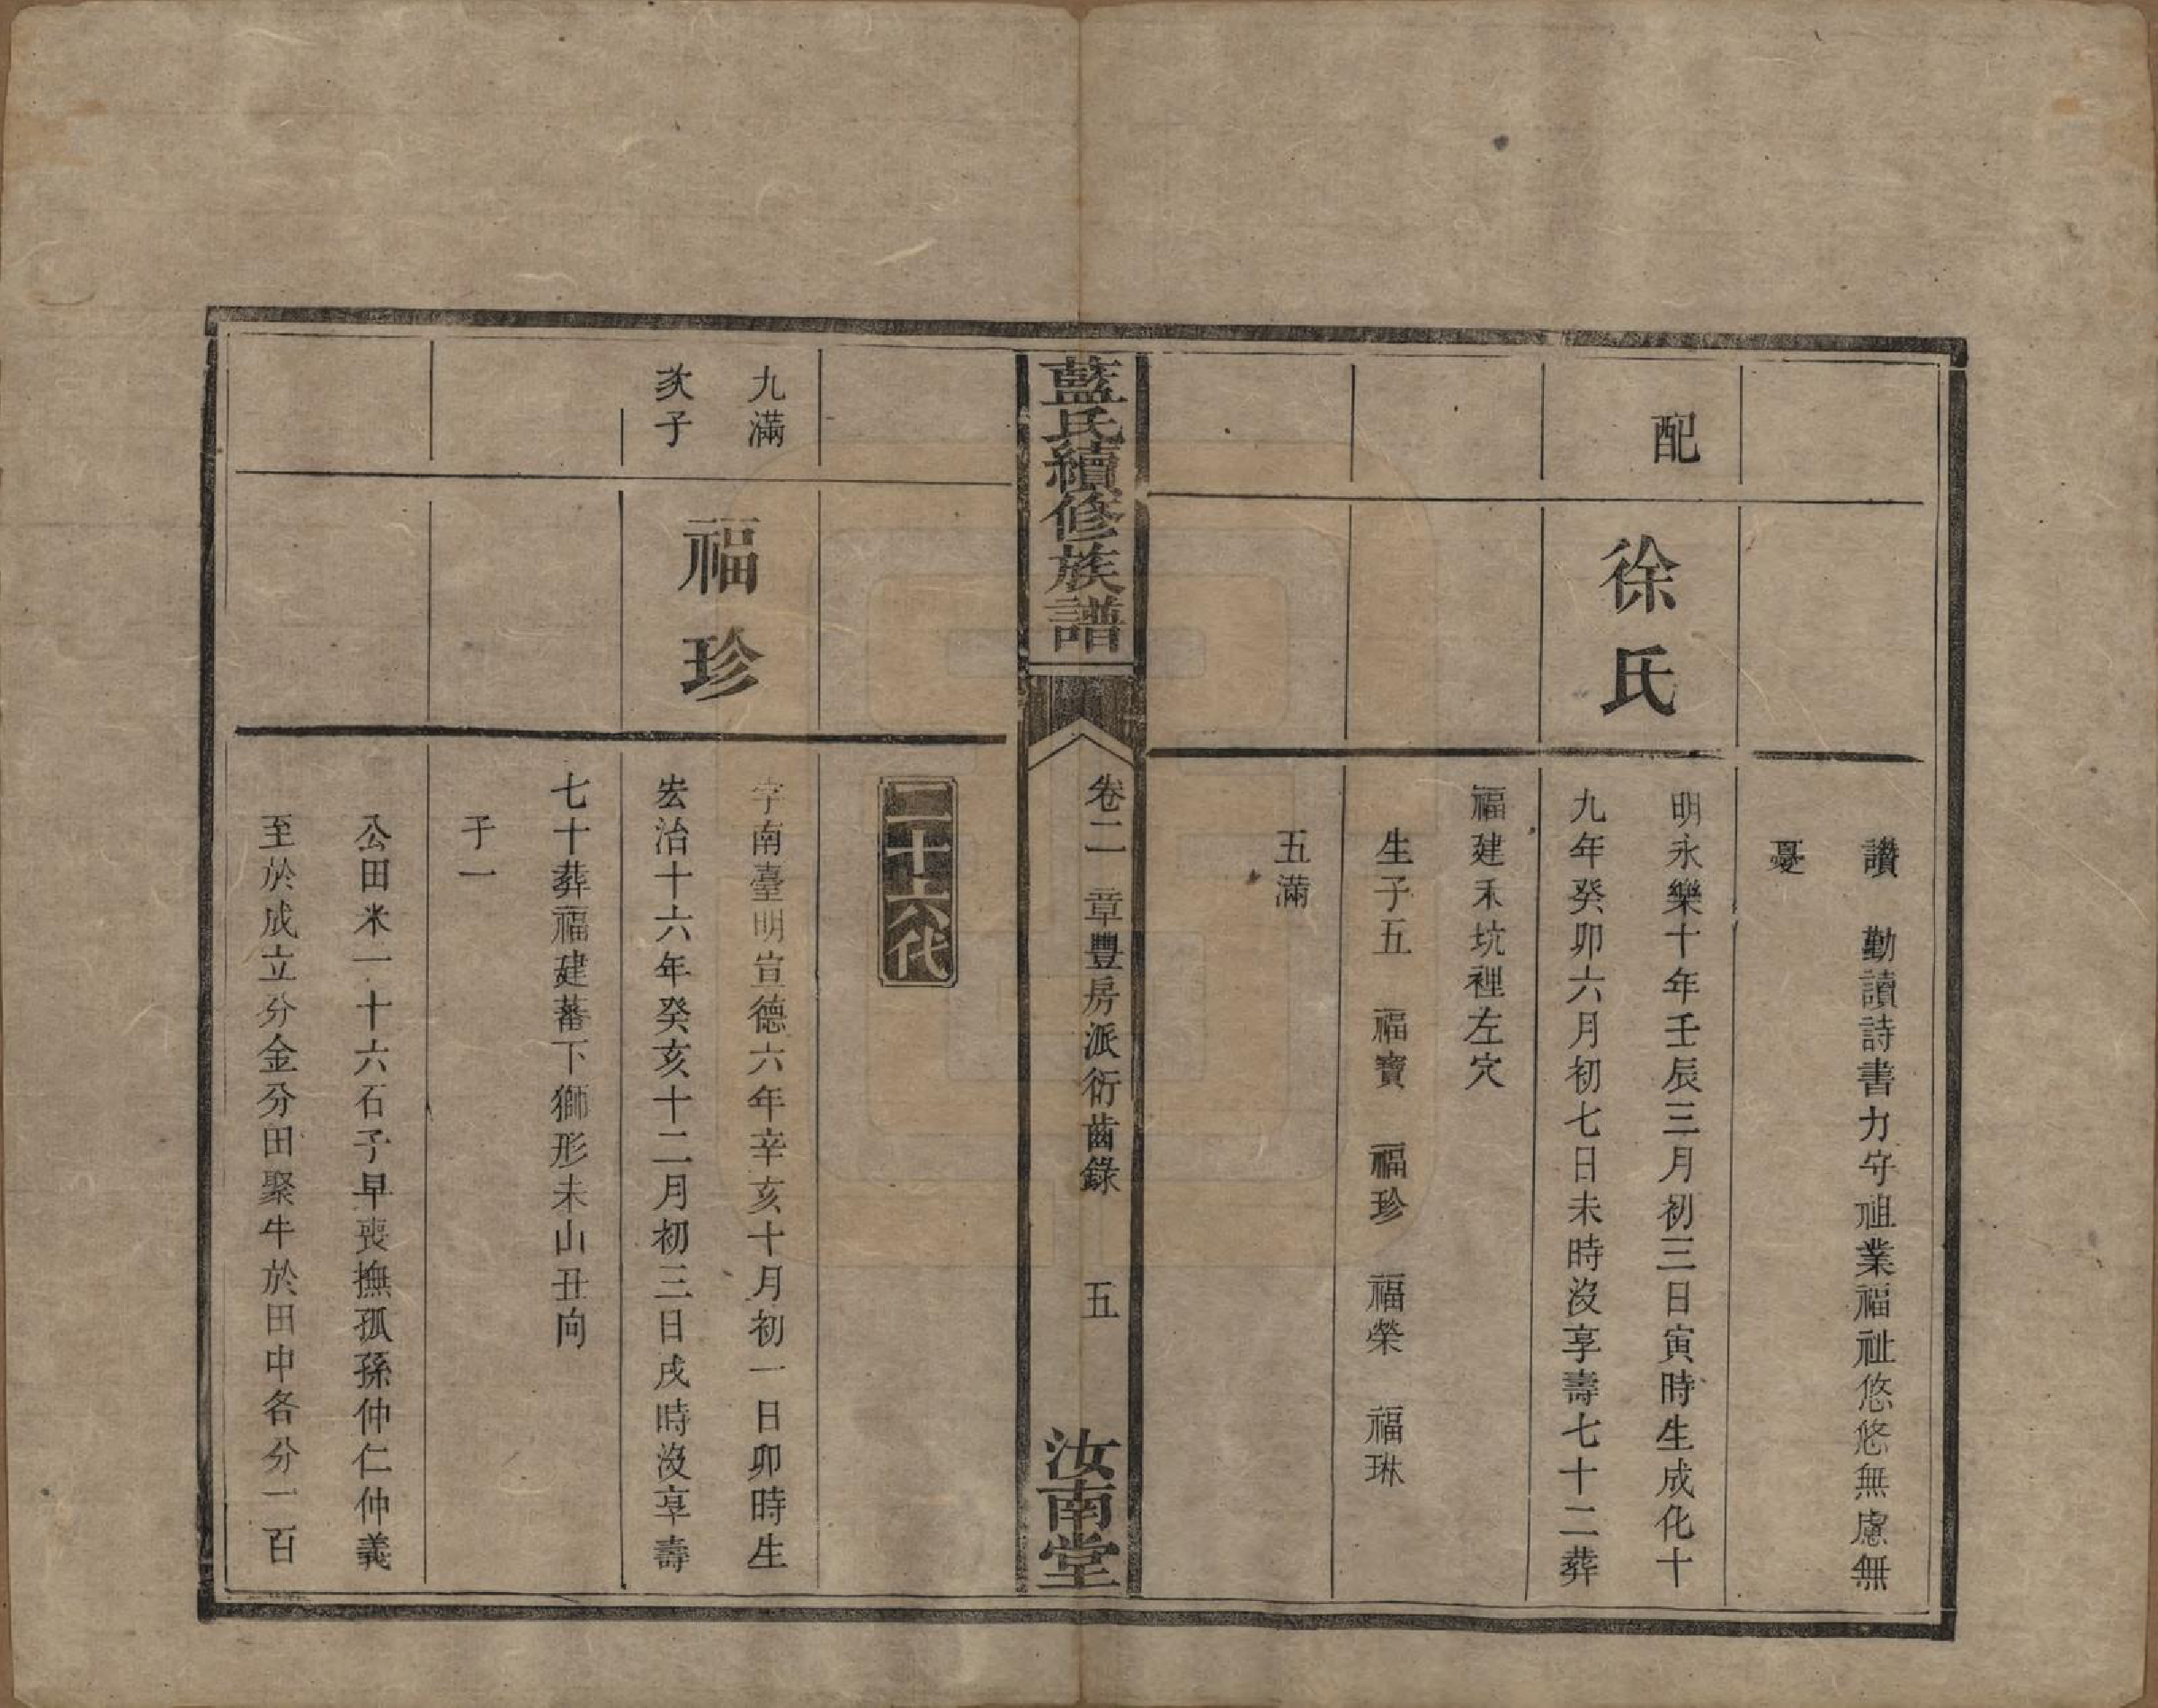 讚　勤讀詩書力守祖業福祉悠悠無慮無
憂
配
徐氏
明永樂十年壬辰三月初三日寅時生成化十
九年癸卯六月初七日未時沒享壽七十二葬
福建禾坑裡左穴
生子五　福寶　福珍　福榮　福琳
五滿
藍氏續修族譜
卷二　章豐房派衍齒錄　五
汝南堂
二十六代
九滿
次子
福珍
字南臺明宣德六年辛亥十月初一日卯時生
宏治十六年癸亥十二月初三日戌時沒享壽
七十葬福建蕃下獅形未山丑向
子一
公田米一十六石子早喪撫孤孫仲仁仲義
至於成立分金分田聚牛於田中各分一百